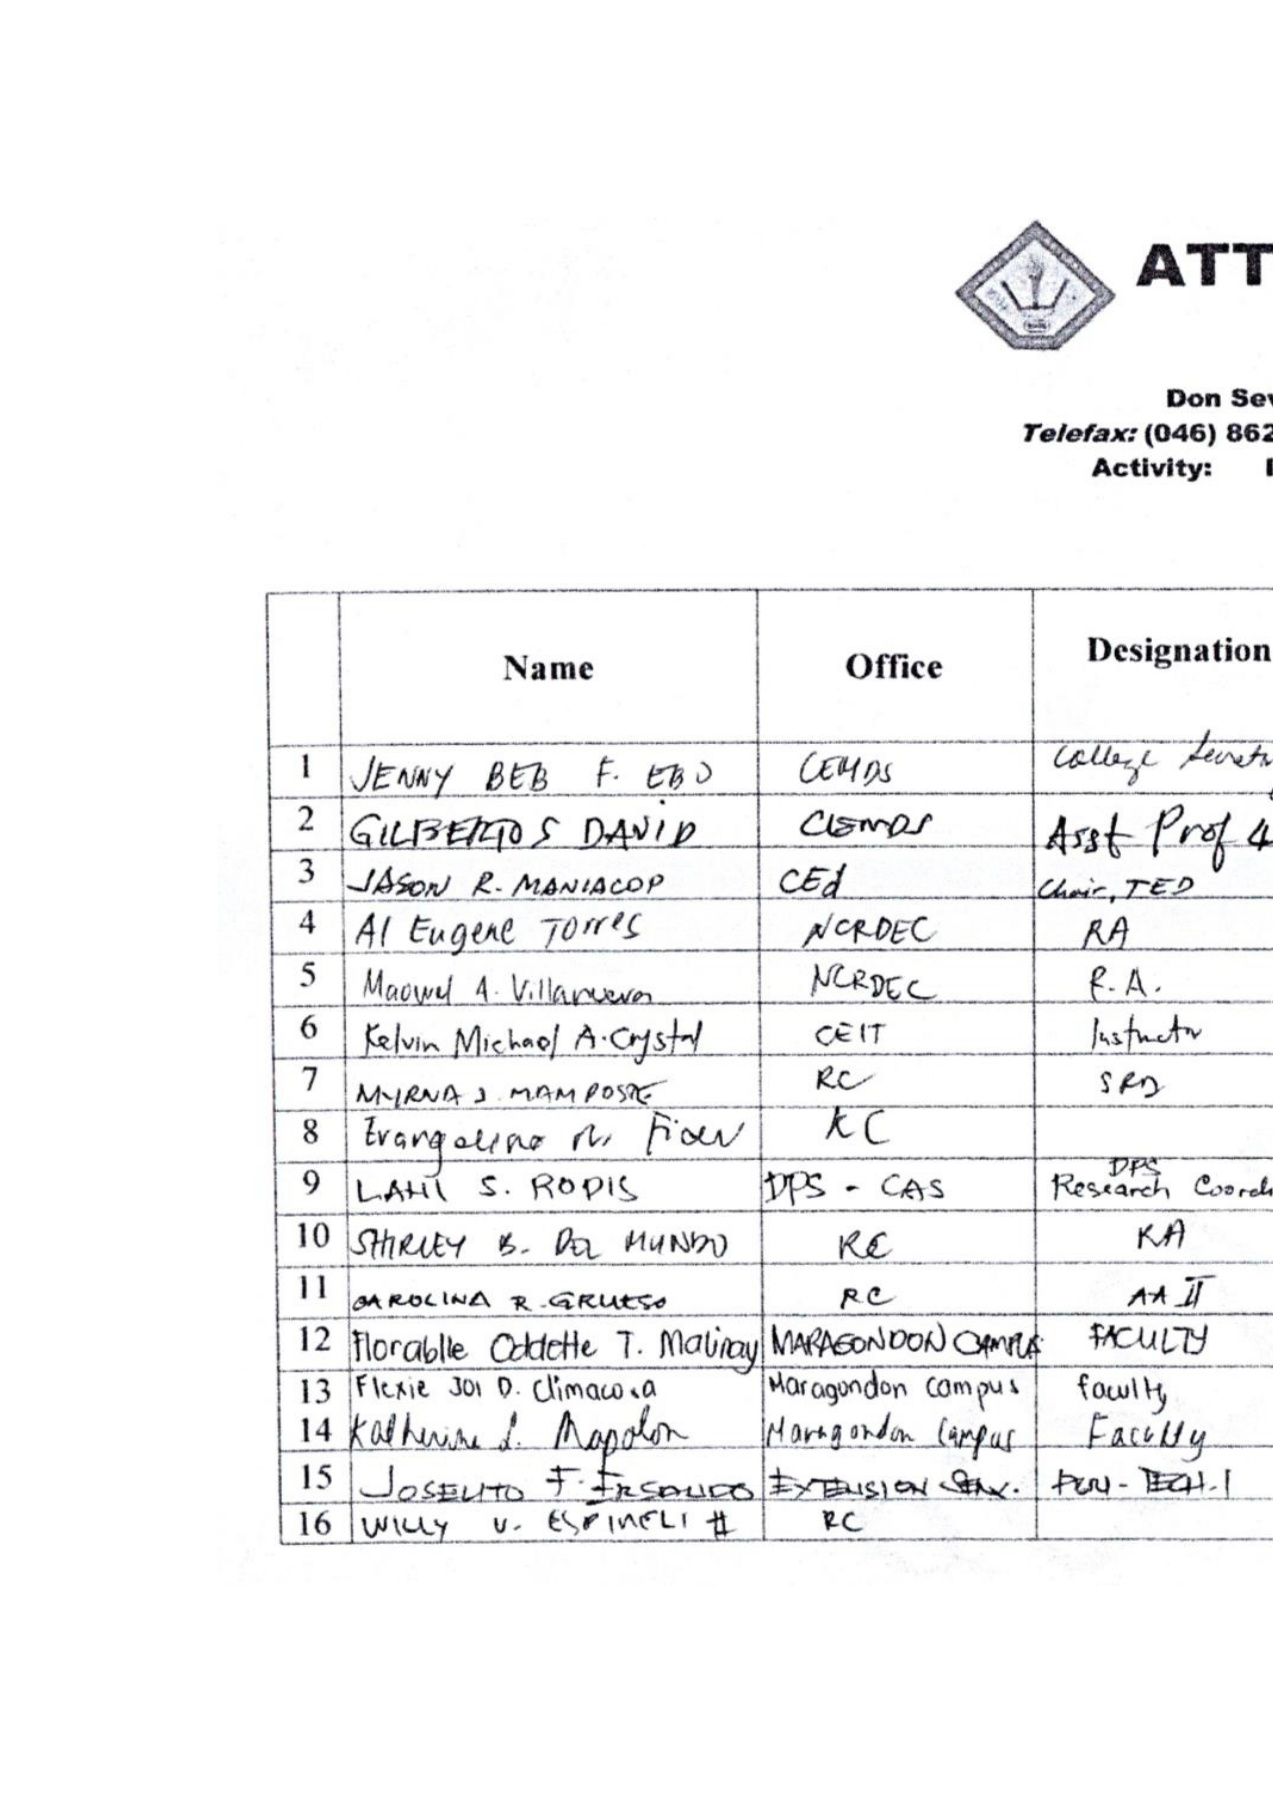 ATT
Don Sev
Telefax: (046) 862
Activity: I
Name Office Designation
1 JENNY BEB F. EBO CEMDS College Secreta
2 GILBERTO S DAVID CEMDS Asst Prof 4
3 JASON R. MANIACOP CEd Chair, TED
4 Al Eugene Torres NCRDEC RA
5 A. Villanueva NCRDEC R.A.
6 Kelvin Michael A. Crystal CEIT Instructor
7 MYRNA J. MAMPOSTE RC SRD
8 RC
9 LANI S. RODIS DPS - CAS DPS
Research Coordi
10 SHIRLEY B. DEL MUNDO RC RA
11 CAROLINA R. GRUESO RC AA II
12 Florablle Oddette T. Malinay MARAGONDON CAMPUS FACULTY
13 Flexie JOI D. Climacosa Maragondon campus faculty
14 Katherine L. Mapolon Maragondon Campus Faculty
15 JOSELITO F. EXTENSION SERV. TECH. I
16 WILLY V. ESPINELI # RC